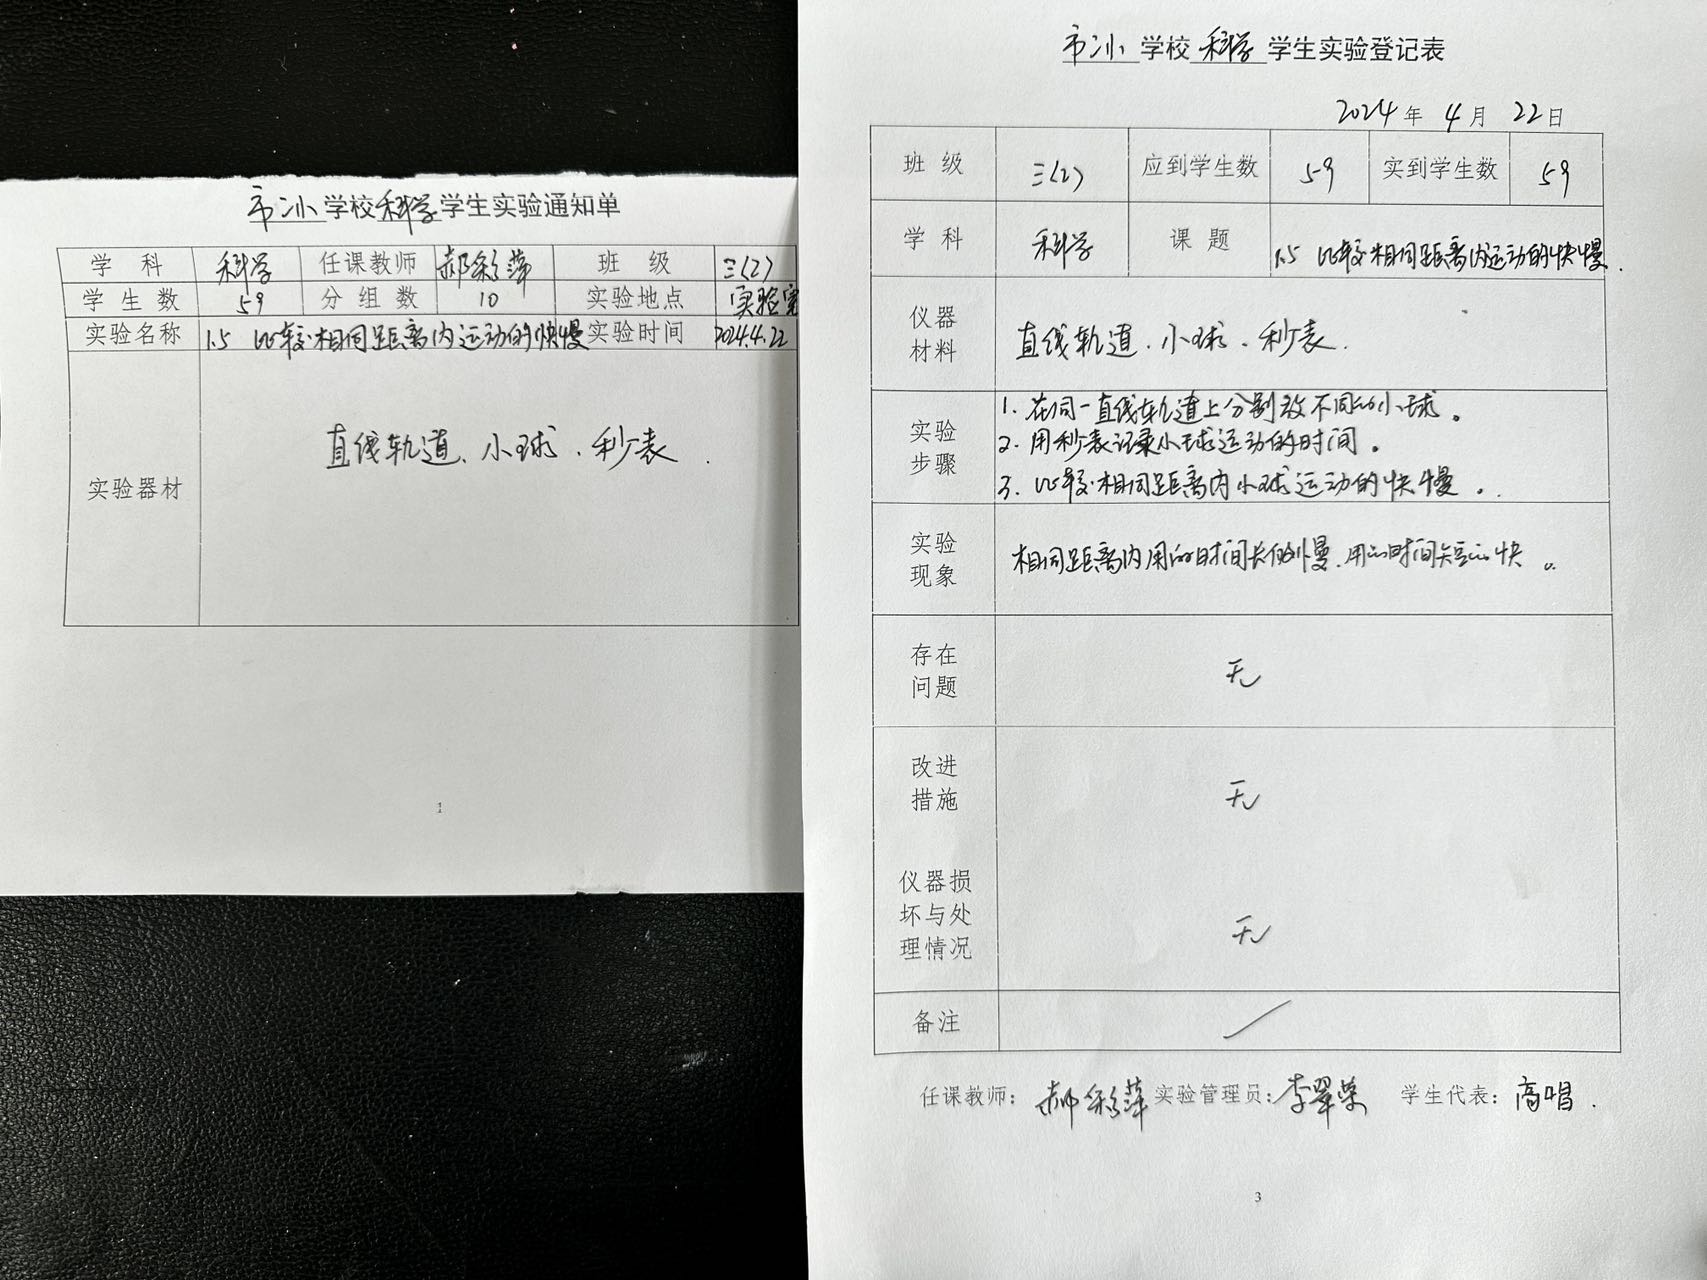 市二小学校科学学生实验通知单
学 科 科学 任课教师 郝彩萍 班 级 三(2)
学 生 数 59 分 组 数 10 实验地点 实验室
实验名称 1.5 比较相同距离内运动的快慢 实验时间 2024.4.22
实验器材 直线轨道、小球、秒表.
1
市二小学校科学学生实验登记表
2024年 4月 22日
班 级 三(2) 应到学生数 59 实到学生数 59
学 科 科学 课 题 1.5 比较相同距离内运动的快慢.
仪器
材料
直线轨道、小球、秒表.
实验
步骤
1. 在同一直线轨道上分别放不同的小球。
2. 用秒表记录小球运动的时间。
3. 比较相同距离内小球运动的快慢。
实验
现象
相同距离内用的时间长的慢,用的时间短的快。
存在
问题
无
改进
措施
无
仪器损
坏与处
理情况
无
备注 /
任课教师: 郝彩萍 实验管理员: 李翠荣 学生代表: 高唱.
3